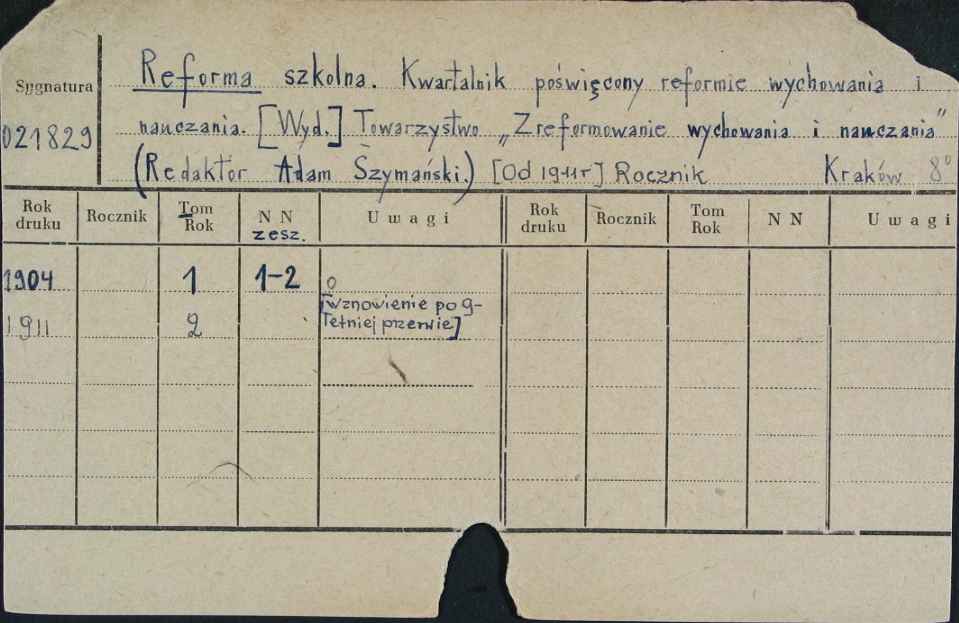 Sygnatura
021829
Reforma szkolna. Kwartalnik poświęcony reformie wychowania i
nauczania. [Wyd.] Towarzystwo „Zreformowanie wychowania i nauczania"
(Redaktor Adam Szymański.) [Od 1911 r] Rocznik Kraków 8°
Rok druku Rocznik Tom Rok N N zesz. Uwagi Rok druku Rocznik Tom Rok N N Uwagi
1904 1 1-2 o
[wznowienie po 9-
1911 2 letniej przerwie]